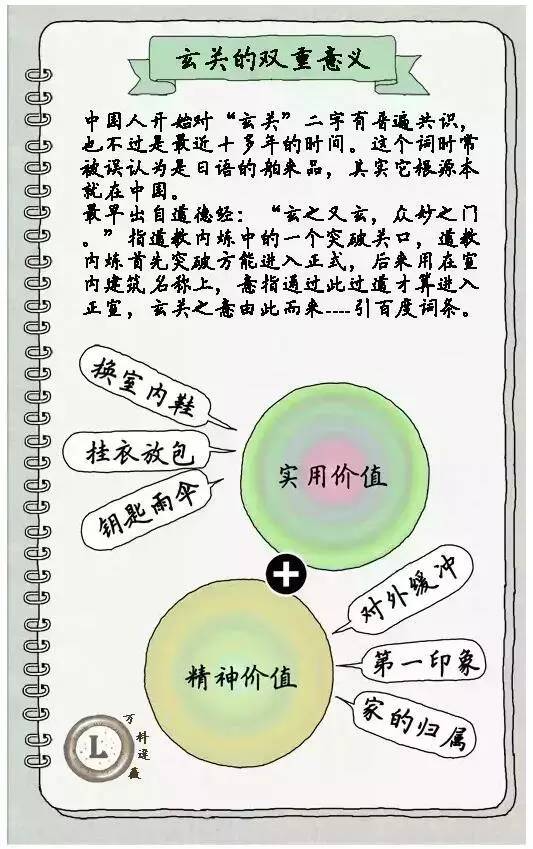 玄关的双重意义
中国人开始对“玄关”二字有普遍共识，
也不过是最近十多年的时间。这个词时常
被误认为是日语的舶来品，其实它根源本
就在中国。
最早出自道德经：“玄之又玄，众妙之门
。”指道教内炼中的一个突破关口，道教
内炼首先突破方能进入正式，后来用在室
内建筑名称上，意指通过此过道才算进入
正室，玄关之意由此而来----引百度词条。
换室内鞋
挂衣放包
钥匙雨伞
实用价值
+
精神价值
对外缓冲
第一印象
家的归属
L
万科